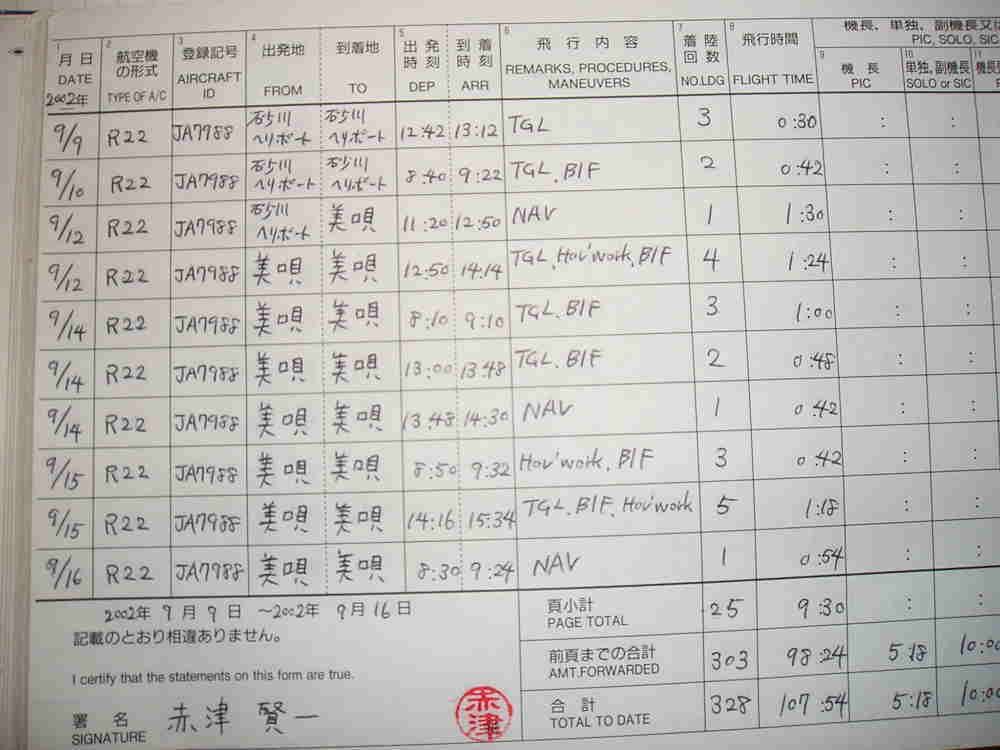 1 月日 2 航空機の形式 3 登録記号 4 出発地 到着地 5 出発時刻 到着時刻 6 飛行内容 7 着陸回数 8 飛行時間 機長、単独、副機長又は
PIC, SOLO, SIC
9 機長 10 単独,副機長 11 機長
DATE 2002年 TYPE OF A/C AIRCRAFT ID FROM TO DEP ARR REMARKS, PROCEDURES, MANEUVERS NO.LDG FLIGHT TIME PIC SOLO or SIC
9/9 R22 JA7988 石狩川ヘリポート 石狩川ヘリポート 12:42 13:12 TGL 3 0:30 : :
9/10 R22 JA7988 石狩川ヘリポート 石狩川ヘリポート 8:40 9:22 TGL, BIF 2 0:42 : :
9/12 R22 JA7988 石狩川ヘリポート 美唄 11:20 12:50 NAV 1 1:30 : :
9/12 R22 JA7988 美唄 美唄 12:50 14:14 TGL, Hov'work, BIF 4 1:24 : :
9/14 R22 JA7988 美唄 美唄 8:10 9:10 TGL, BIF 3 1:00 : :
9/14 R22 JA7988 美唄 美唄 13:00 13:48 TGL, BIF 2 0:48 : :
9/14 R22 JA7988 美唄 美唄 13:48 14:30 NAV 1 0:42 : :
9/15 R22 JA7988 美唄 美唄 8:50 9:32 Hov'work, BIF 3 0:42 : :
9/15 R22 JA7988 美唄 美唄 14:16 15:34 TGL, BIF, Hov'work 5 1:18 : :
9/16 R22 JA7988 美唄 美唄 8:30 9:24 NAV 1 0:54 : :
2002年 9月 9日 ～2002年 9月16日
記載のとおり相違ありません。
I certify that the statements on this form are true.
署名 SIGNATURE 赤津 賢一
赤津
頁小計 PAGE TOTAL 25 9:30 : :
前頁までの合計 AMT.FORWARDED 303 98:24 5:18 10:00
合計 TOTAL TO DATE 328 107:54 5:18 10:00